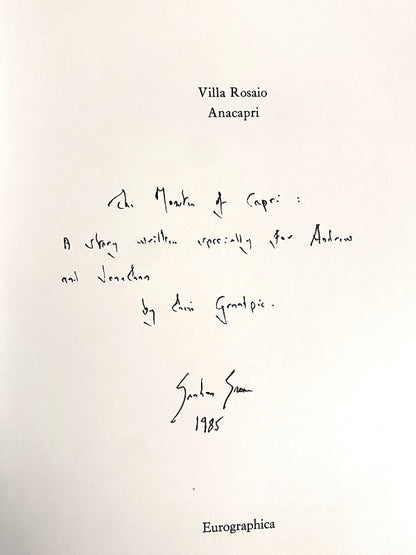 Villa Rosaio
Anacapri
The Monster of Capri :
A story written specially for Andrew
and Jonathan
by their Grandpic.
Graham Greene
1985
Eurographica